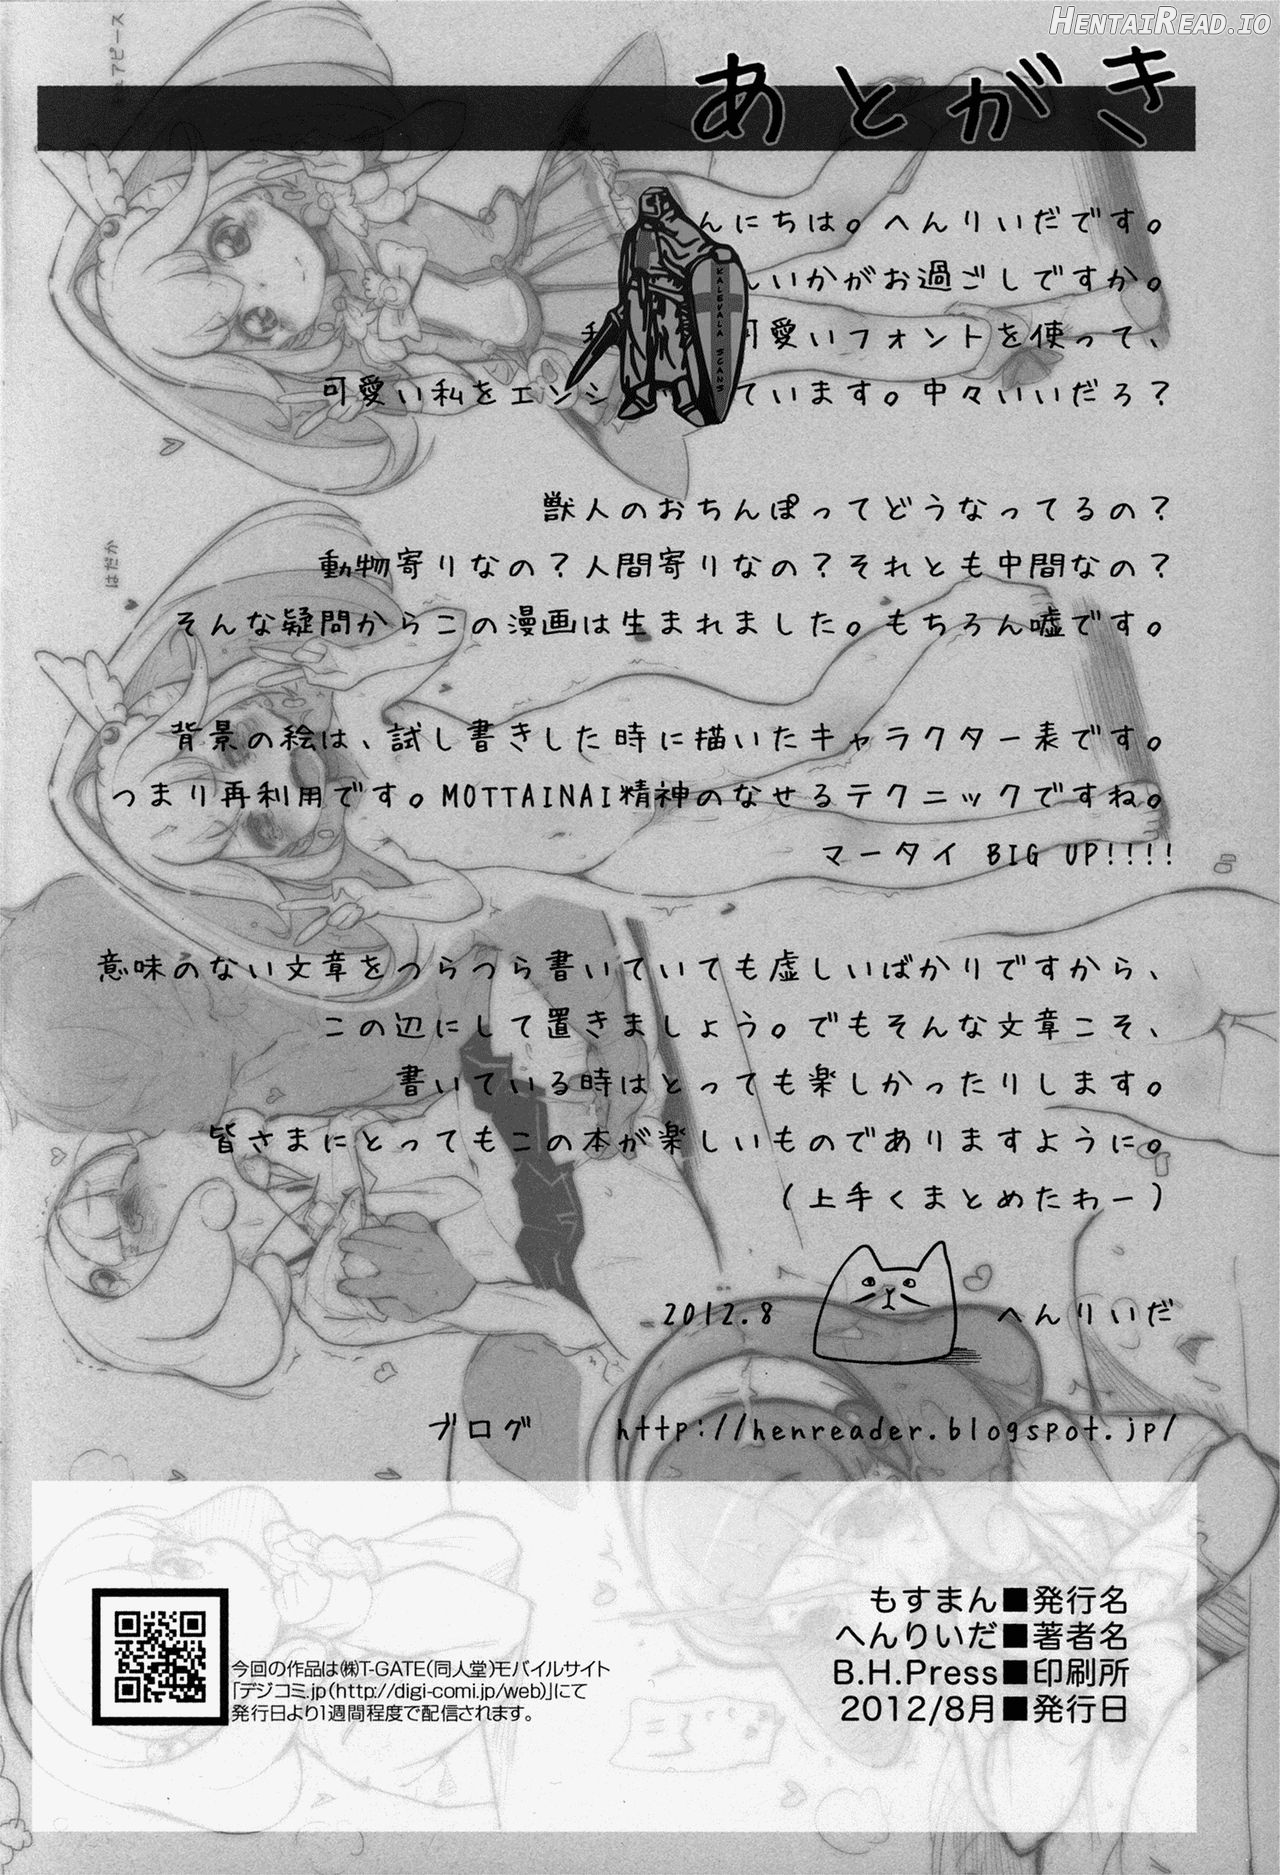 HENTAIREAD.IO
ュアピース
あとがき
んにちは。へんりいだです。
いかがお過ごしですか。
可愛いフォントを使って、
可愛い私をエンシ
ています。中々いいだろ?
KALEVALA SCANS
獣人のおちんぽってどうなってるの?
はだか
動物寄りなの?人間寄りなの?それとも中間なの?
そんな疑問からこの漫画は生まれました。もちろん嘘です。
背景の絵は、試し書きした時に描いたキャラクター表です。
つまり再利用です。MOTTAINAI精神のなせるテクニックですね。
マータイ BIG UP!!!!
意味のない文章をつらつら書いていても虚しいばかりですから、
この辺にして置きましょう。でもそんな文章こそ、
書いている時はとっても楽しかったりします。
皆さまにとってもこの本が楽しいものでありますように。
(上手くまとめたわー)
2012.8 へんりいだ
ブログ http://henreader.blogspot.jp/
もすまん■発行名
へんりいだ■著者名
B.H.Press■印刷所
2012/8月■発行日
今回の作品は㈱T-GATE(同人堂)モバイルサイト
「デジコミ.jp(http://digi-comi.jp/web)」にて
発行日より1週間程度で配信されます。